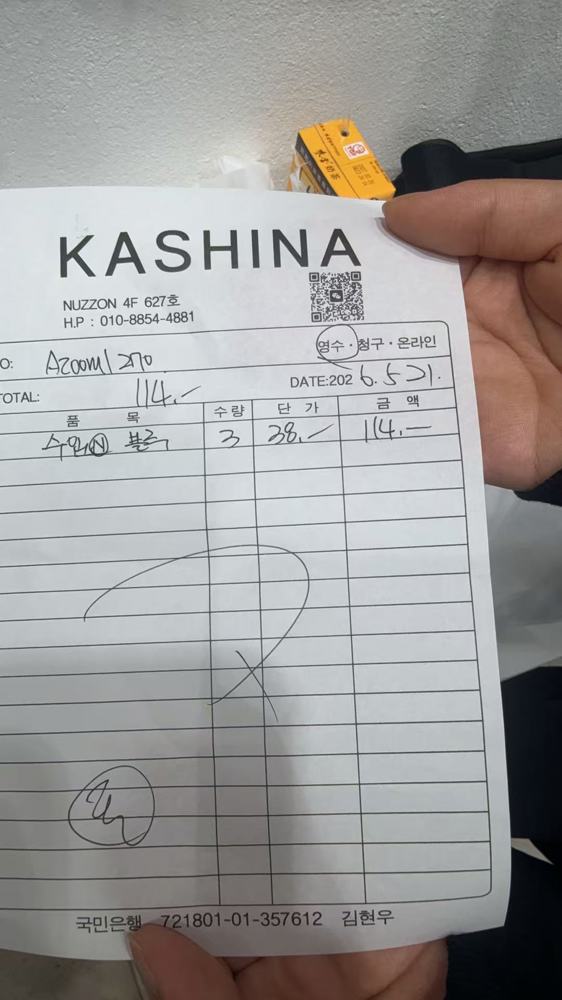 KASHINA
NUZZON 4F 627호
H.P : 010-8854-4881
영수 · 청구 · 온라인
O: Azoom/270
TOTAL: 114.-
DATE:2026.5.21.
품 목 수량 단 가 금 액
3 38.- 114.-
국민은행 721801-01-357612 김현우